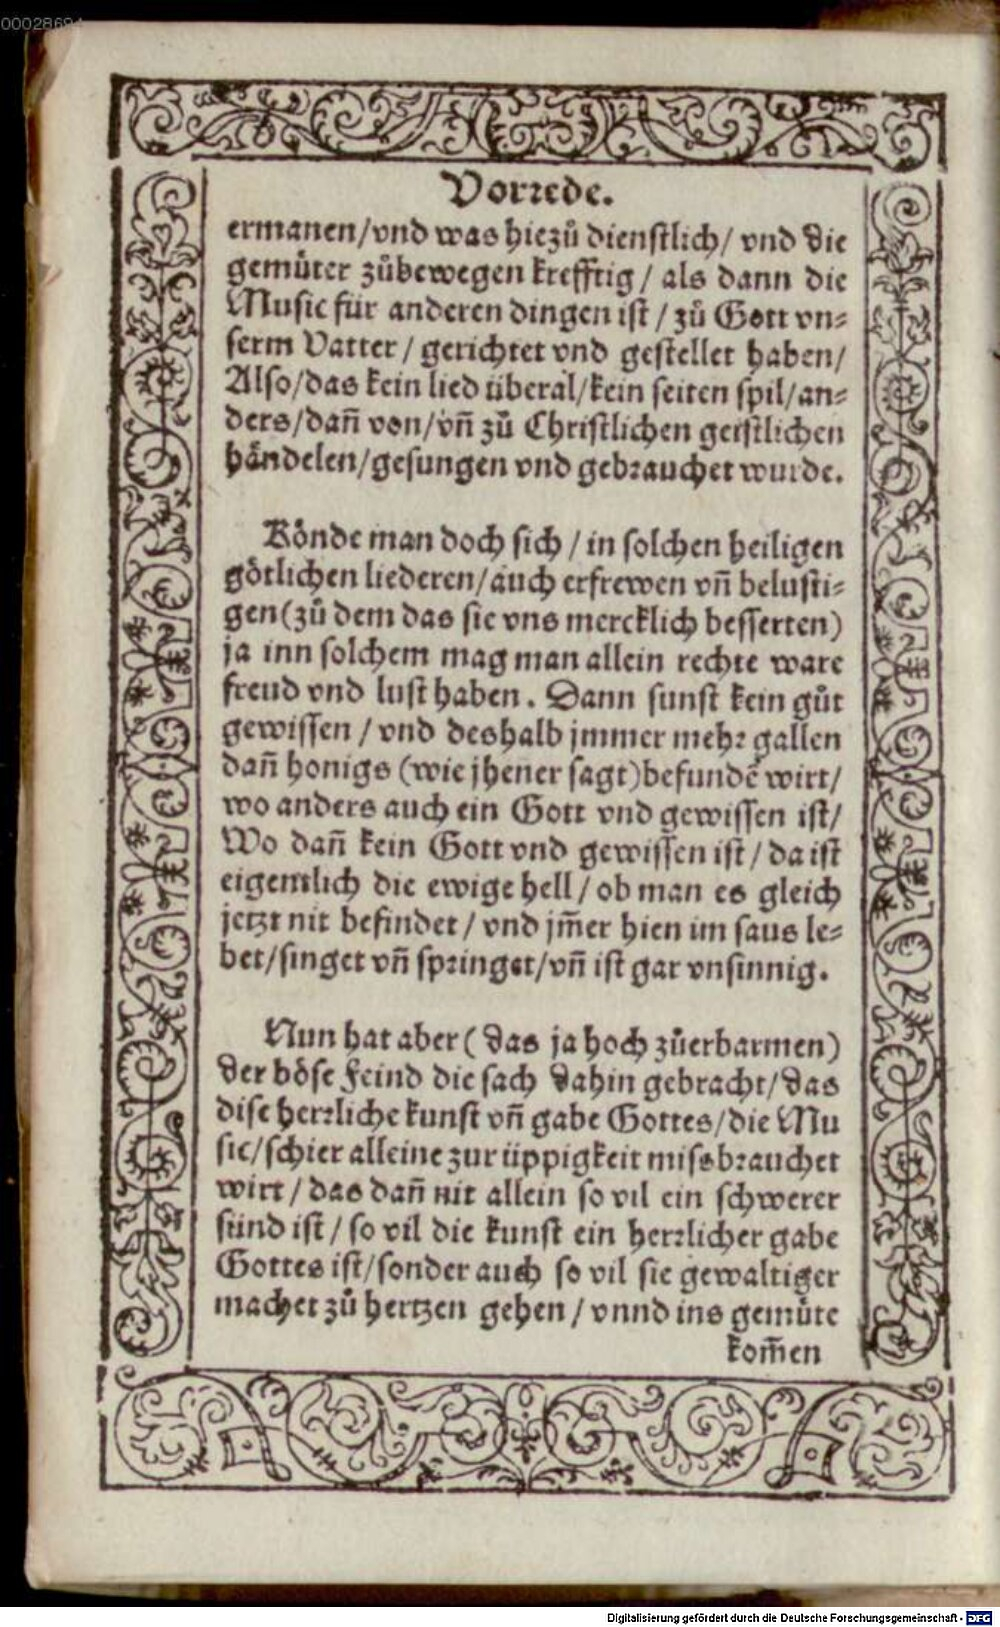 00028694
Vorrede.
ermanen/vnd was hiezů dienstlich/ vnd die
gemüter zůbewegen krefftig / als dann die
Music für anderen dingen ist / zů Gott vn⸗
serm Vatter / gerichtet vnd gestellet haben/
Also/das kein lied überal/kein seiten spil/an⸗
ders/dañ von/vñ zů Christlichen geistlichen
håndelen/gesungen vnd gebrauchet wurde.
Könde man doch sich / in solchen heiligen
götlichen liederen/auch erfrewen vñ belusti⸗
gen(zů dem das sie vns mercklich besserten)
ja inn solchem mag man allein rechte ware
freud vnd lust haben. Dann sunst kein gůt
gewissen / vnd deshalb jmmer mehr gallen
dañ honigs (wie jhener sagt)befundē wirt/
wo anders auch ein Gott vnd gewissen ist/
Wo dañ kein Gott vnd gewissen ist / da ist
eigentlich die ewige hell / ob man es gleich
jetzt nit befindet / vnd jm̃er hien im saus le⸗
bet/singet vñ springet/vñ ist gar vnsinnig.
Nun hat aber ( das ja hoch zůerbarmen)
der böse Feind die sach dahin gebracht/das
dise herrliche kunst vñ gabe Gottes/die Mu
sic/schier alleine zur üppigkeit missbrauchet
wirt / das dañ nit allein so vil ein schwerer
sünd ist / so vil die kunst ein herrlicher gabe
Gottes ist/sonder auch so vil sie gewaltiger
machet zů hertzen gehen / vnnd ins gemüte
kom̃en
Digitalisierung gefördert durch die Deutsche Forschungsgemeinschaft - DFG